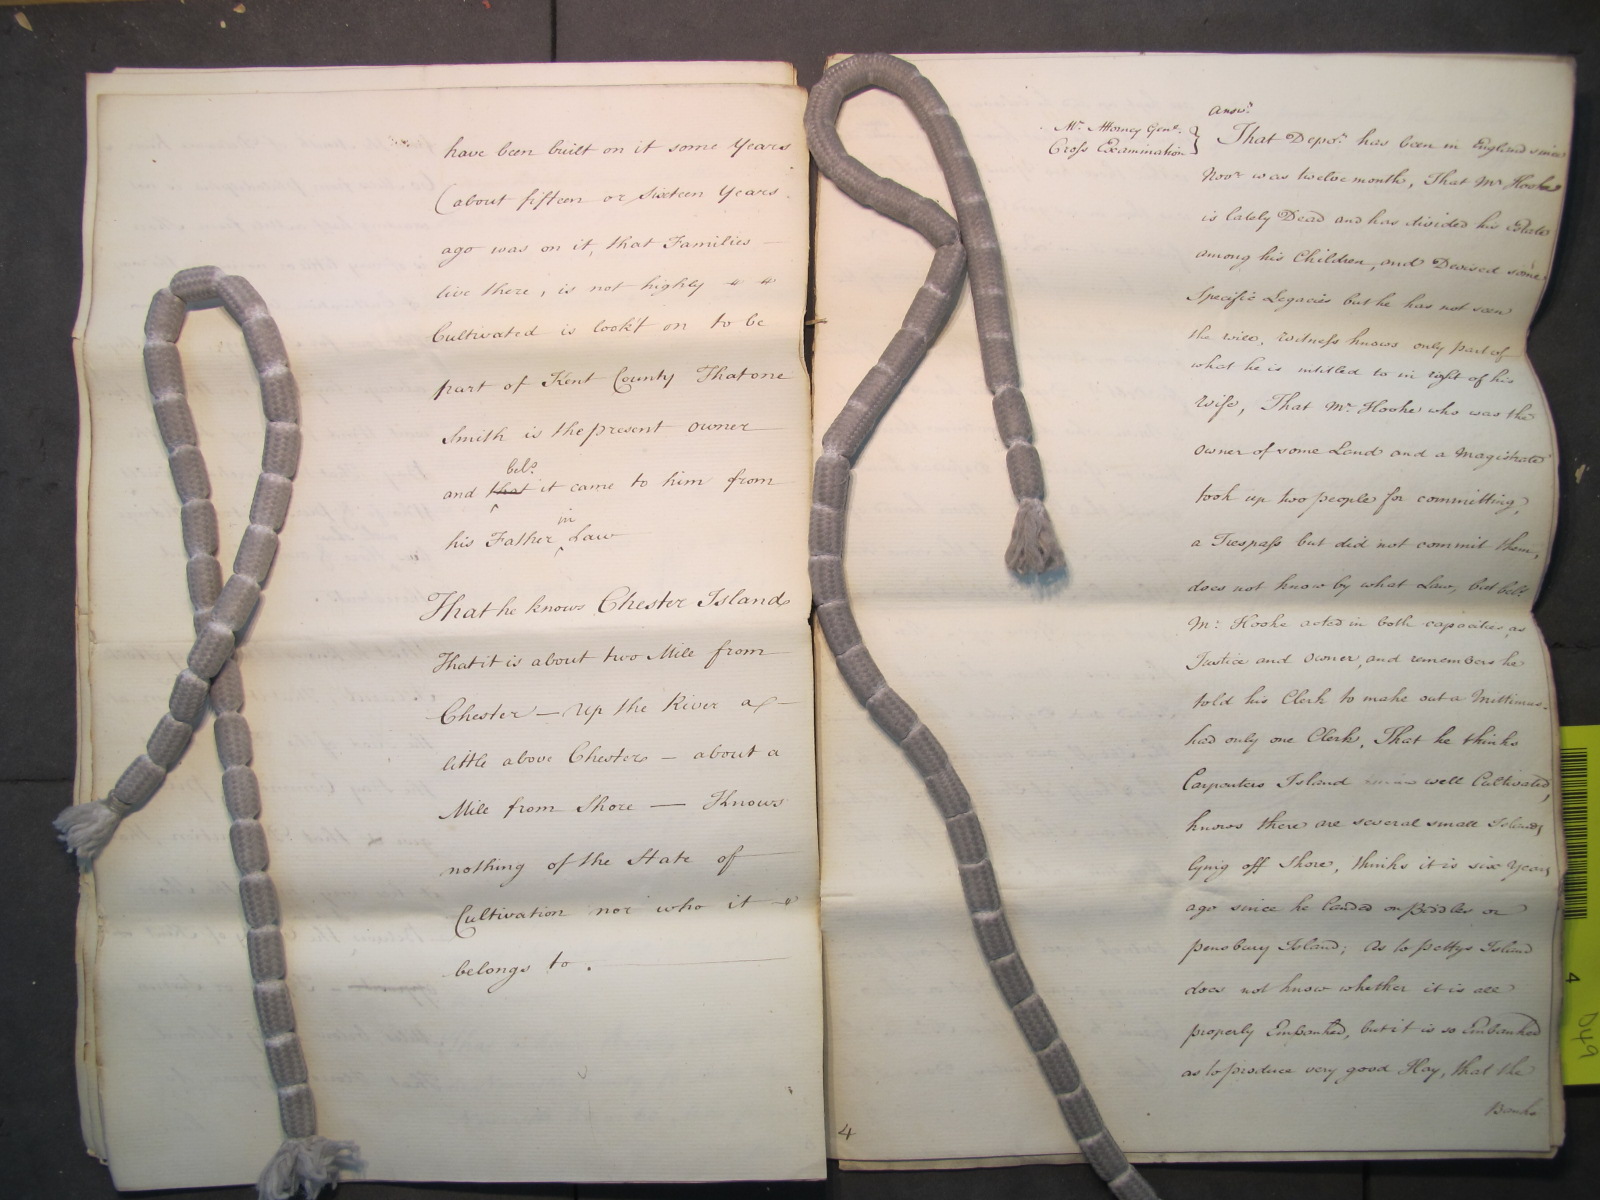 have been built on it some Years
(about fifteen or sixteen Years
ago was on it, that Families —
live there, is not highly
Cultivated is look't on to be
part of Kent County That one
Smith is the present owner
bels
and that it came to him from
in
his Father Law
That he knows Chester Island
That it is about two Mile from
Chester — up the River a
little above Chester — about a
Mile from Shore — Knows
nothing of the State of
Cultivation nor who it
belongs to .
Answr
Mr. Attorney Genl.
Cross Examination
That Depot has been in England since
Novr was twelve month, That Mr Hooke
is lately Dead and has divided his Estate
among his Children, and Devised some
Specific Legacies but he has not seen
the will, Witness knows only part of
what he is intitled to in right of his
Wife, That Mr. Hooke who was the
owner of some Land and a Magistrate
took up two people for committing
a Trespass but did not commit them,
does not know by what Law, but bels
Mr. Hooke acted in both capacities as
Justice and owner, and remembers he
told his Clerk to make out a Mittimus-
had only one Clerk, That he thinks
Carpenters Island well Cultivated,
knows there are several small Islands
lying off Shore, thinks it is six Years
ago since he landed on Bridles or
pensbury Island; as to pettys Island
does not know whether it is all
properly Embanked, but it is so Embanked
as to produce very good Hay, that the
Banks
4
4
049